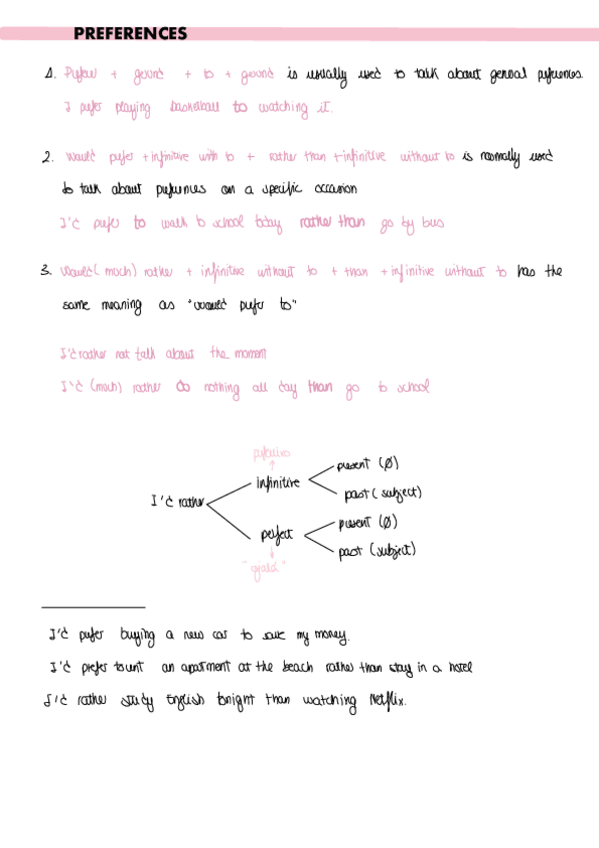 PREFERENCES
1. Prefer + gerund + to + gerund is usually used to talk about general preferences.
I prefer playing basketball to watching it.
2. Would prefer + infinitive with to + rather than + infinitive without to is normally used
to talk about preferences on a specific occasion
I'd prefer to walk to school today rather than go by bus
3. Would (much) rather + infinitive without to + than + infinitive without to has the
same meaning as "would prefer to"
I'd rather not talk about the moment
I'd (much) rather do nothing all day than go to school
I'd rather
infinitive
present (Ø)
past (subject)
perfect
present (Ø)
past (subject)
I'd prefer buying a new car to save my money.
I'd prefer to rent an apartment at the beach rather than stay in a hotel
I'd rather study English tonight than watching Netflix.